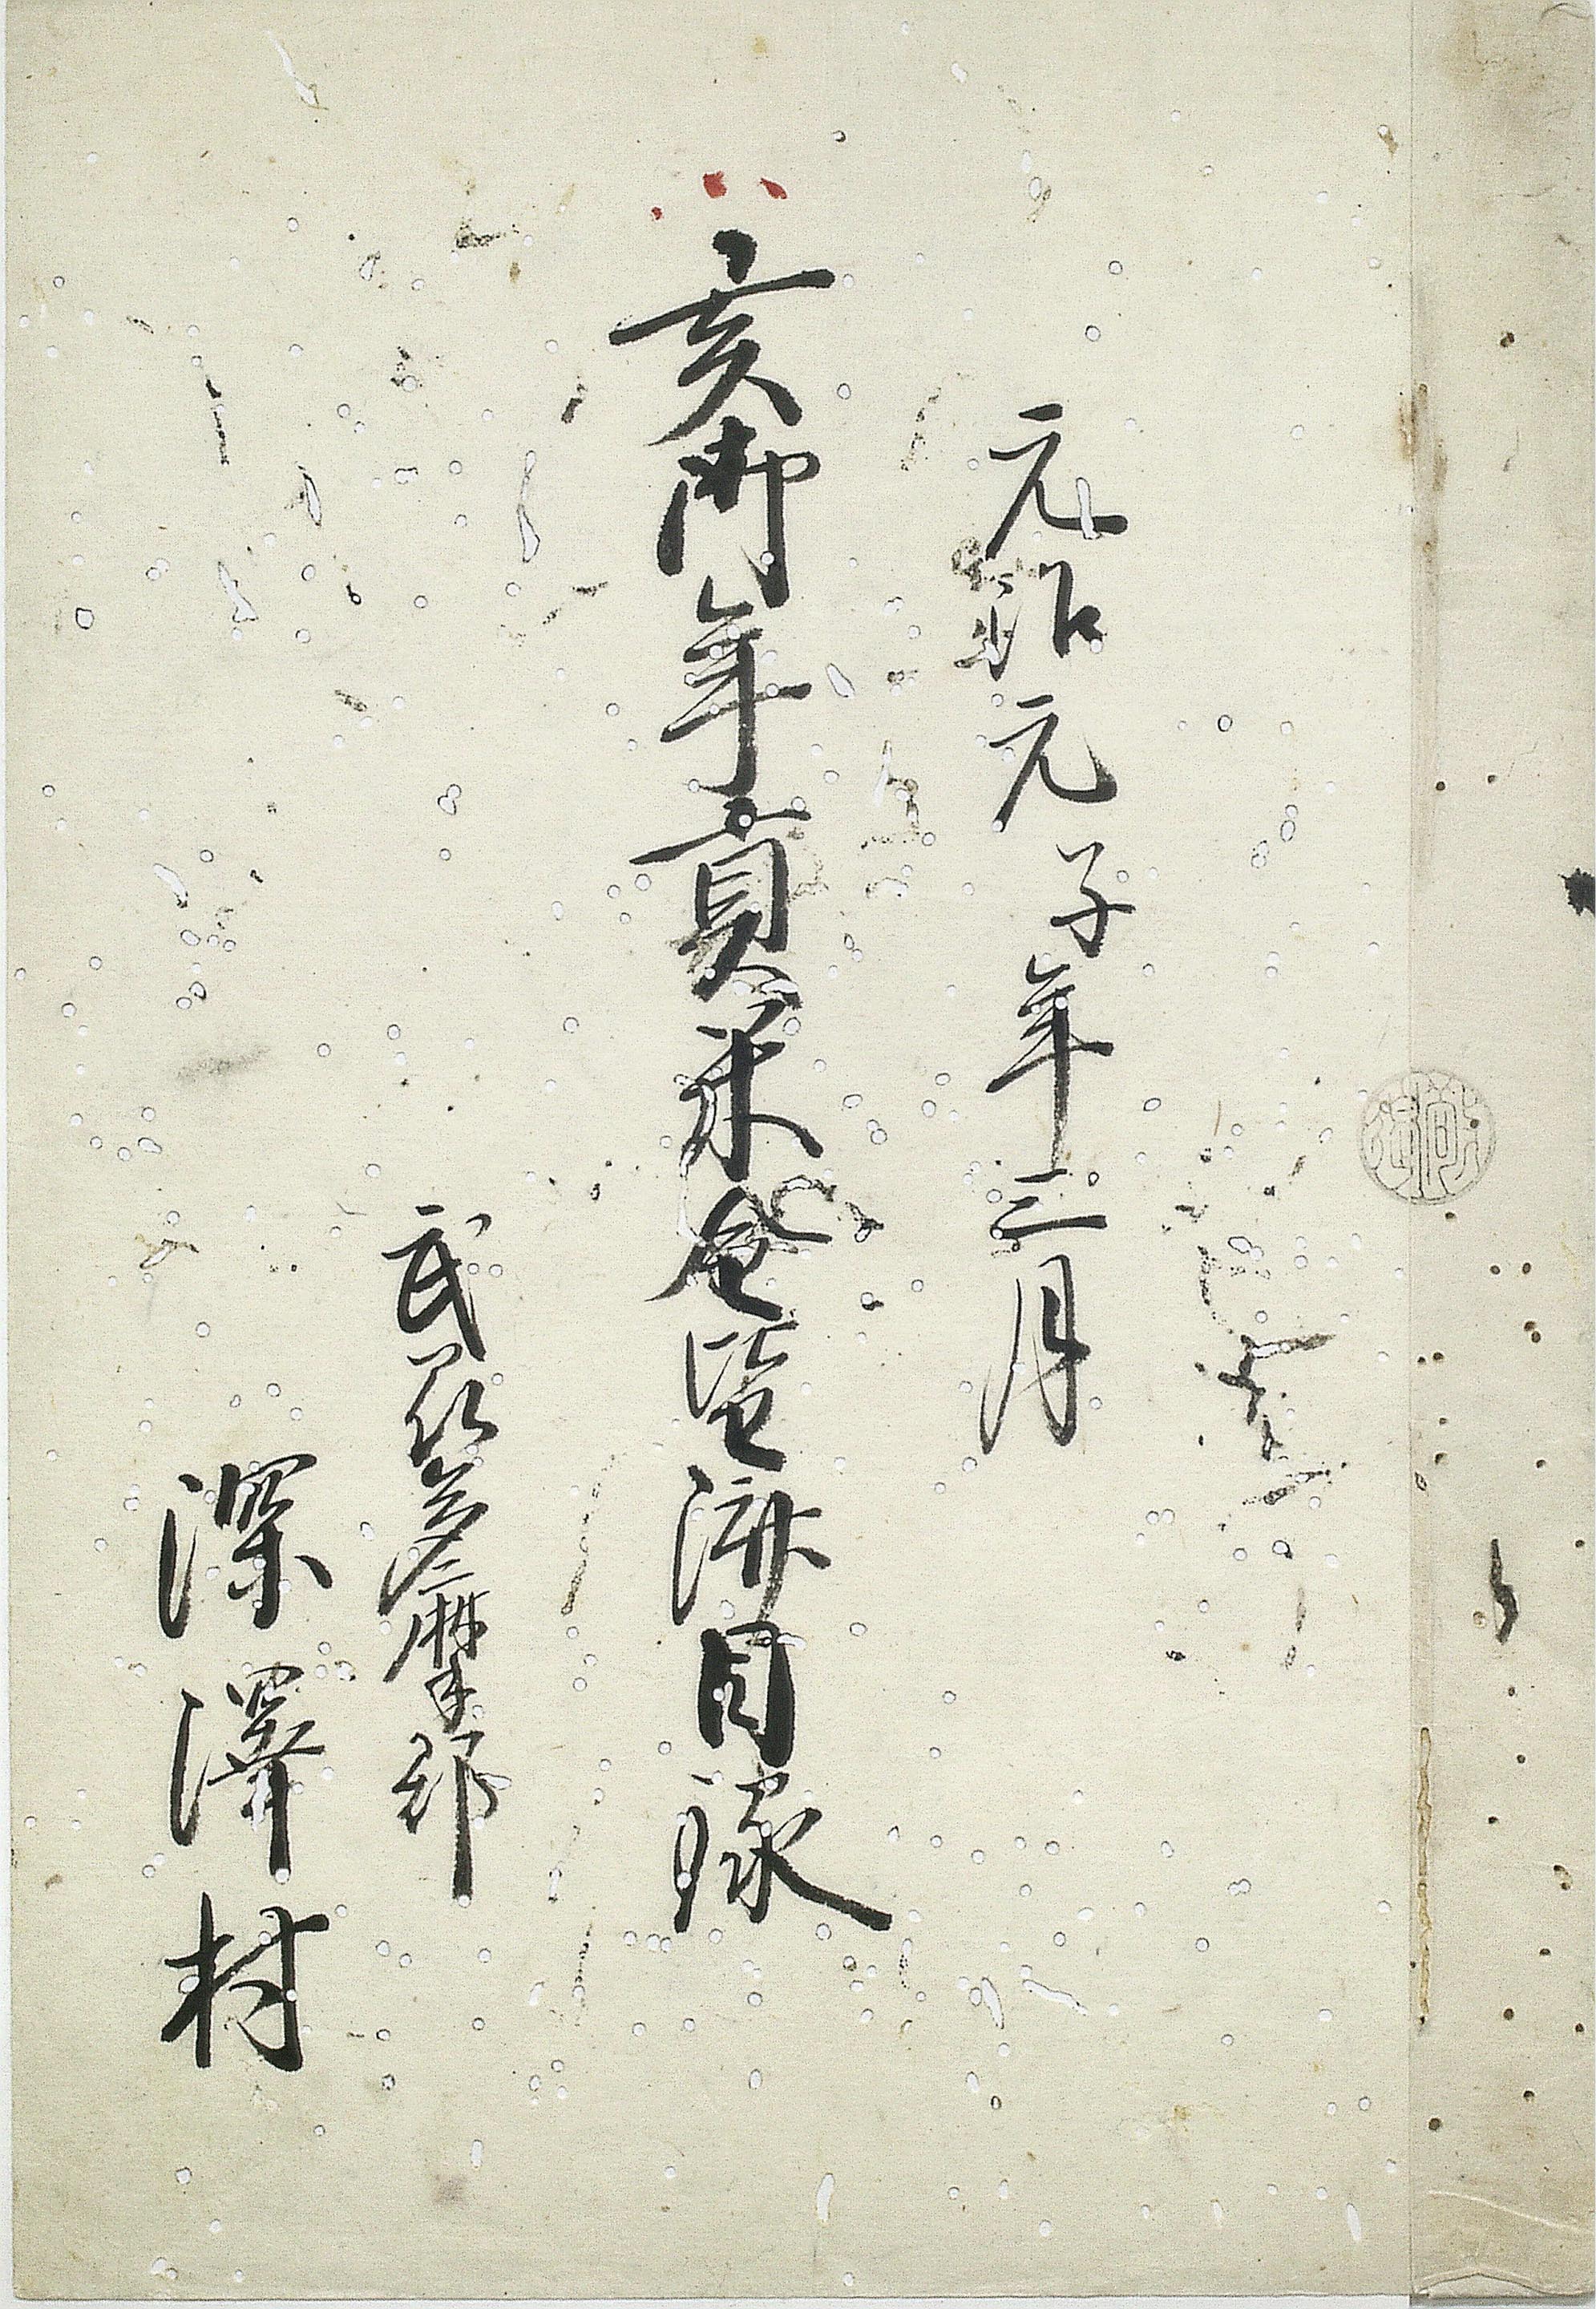 元治元子年三月
亥御年貢米金皆済目録
武州多摩郡
深澤村